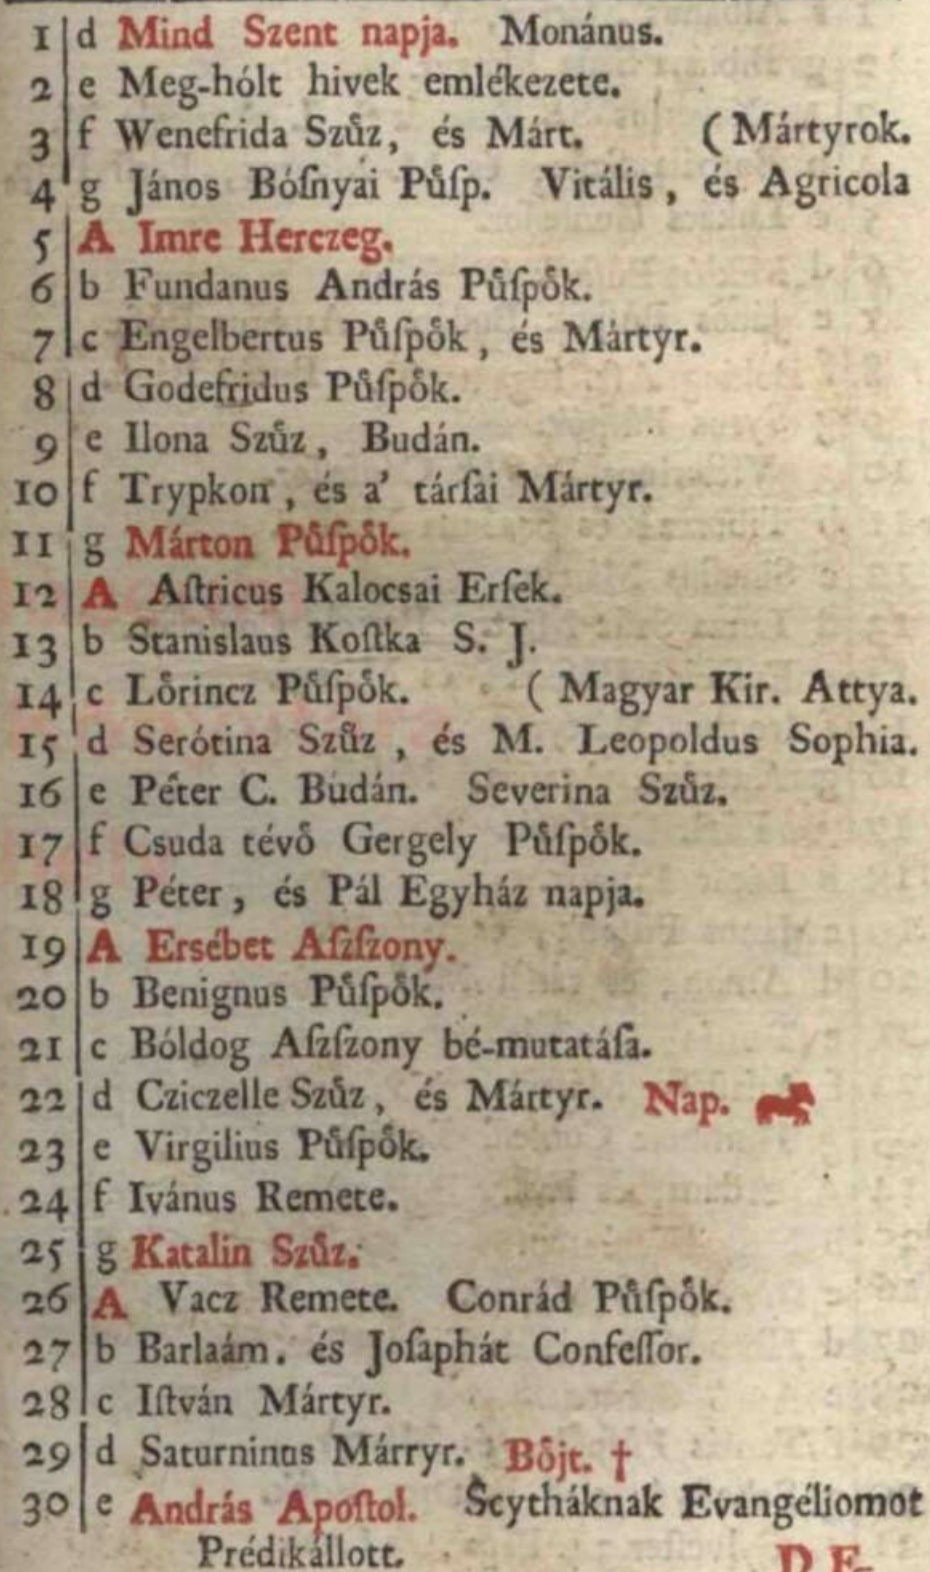 1 d Mind Szent napja. Monánus.
2 e Meg-hólt hivek emlékezete.
3 f Wenefrida Szůz, és Márt. ( Mártyrok.
4 g János Bóſnyai Půſp. Vitális, és Agricola
5 A Imre Herczeg.
6 b Fundanus András Půſpo̊k.
7 c Engelbertus Půſpo̊k, és Mártyr.
8 d Godefridus Půſpo̊k.
9 e Ilona Szůz, Budán.
10 f Trypkon, és a' tárſai Mártyr.
11 g Márton Půſpo̊k.
12 A Aſtricus Kalocsai Erſek.
13 b Stanislaus Koſtka S. J.
14 c Lo̊rincz Půſpo̊k. ( Magyar Kir. Attya.
15 d Serótina Szůz, és M. Leopoldus Sophia.
16 e Péter C. Budán. Severina Szůz.
17 f Csuda tévo̊ Gergely Půſpo̊k.
18 g Péter, és Pál Egyház napja.
19 A Ersébet Aſzſzony.
20 b Benignus Půſpo̊k.
21 c Bóldog Aſzſzony bé-mutatáſa.
22 d Cziczelle Szůz, és Mártyr. Nap.
23 e Virgilius Půſpo̊k.
24 f Ivánus Remete.
25 g Katalin Szůz.
26 A Vacz Remete. Conrád Půſpo̊k.
27 b Barlaám. és Joſaphát Confeſſor.
28 c Iſtván Mártyr.
29 d Saturninus Márryr. Bo̊jt. †
30 e András Apoſtol. Scytháknak Evangéliomot
Prédikállott.
D E-